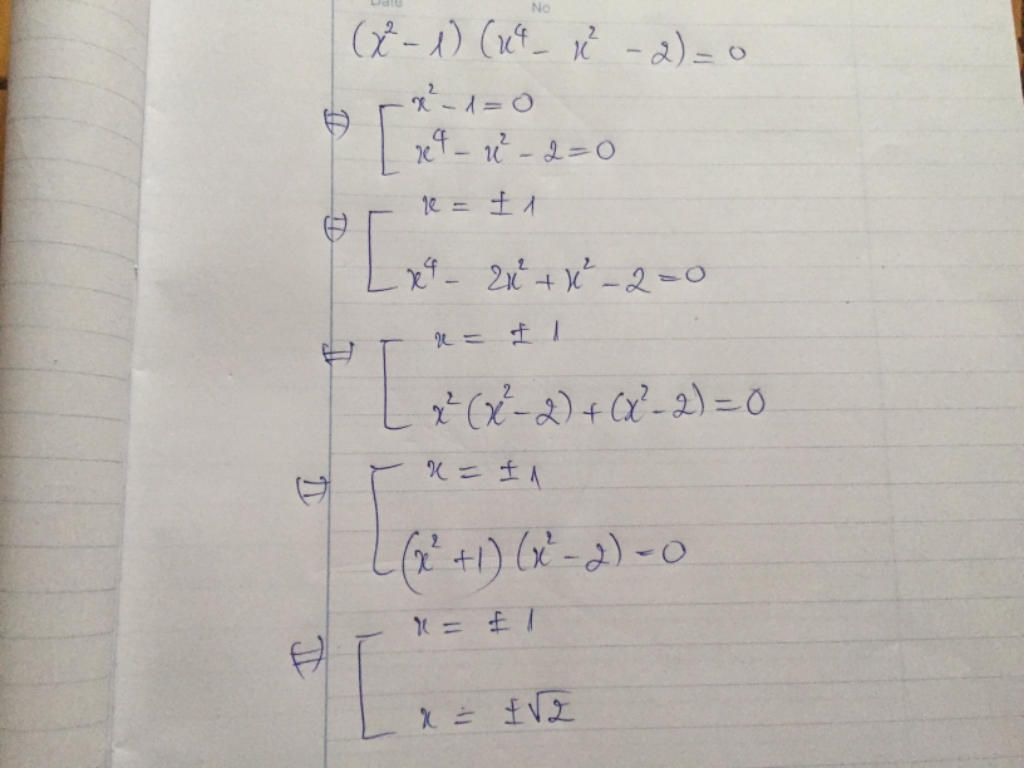 Date No
(x² - 1) (x⁴ - x² - 2) = 0
⇔ [ x² - 1 = 0
x⁴ - x² - 2 = 0
⇔ [ x = ± 1
x⁴ - 2x² + x² - 2 = 0
⇔ [ x = ± 1
x² (x² - 2) + (x² - 2) = 0
⇔ [ x = ± 1
(x² + 1) (x² - 2) = 0
⇔ [ x = ± 1
x = ±√2